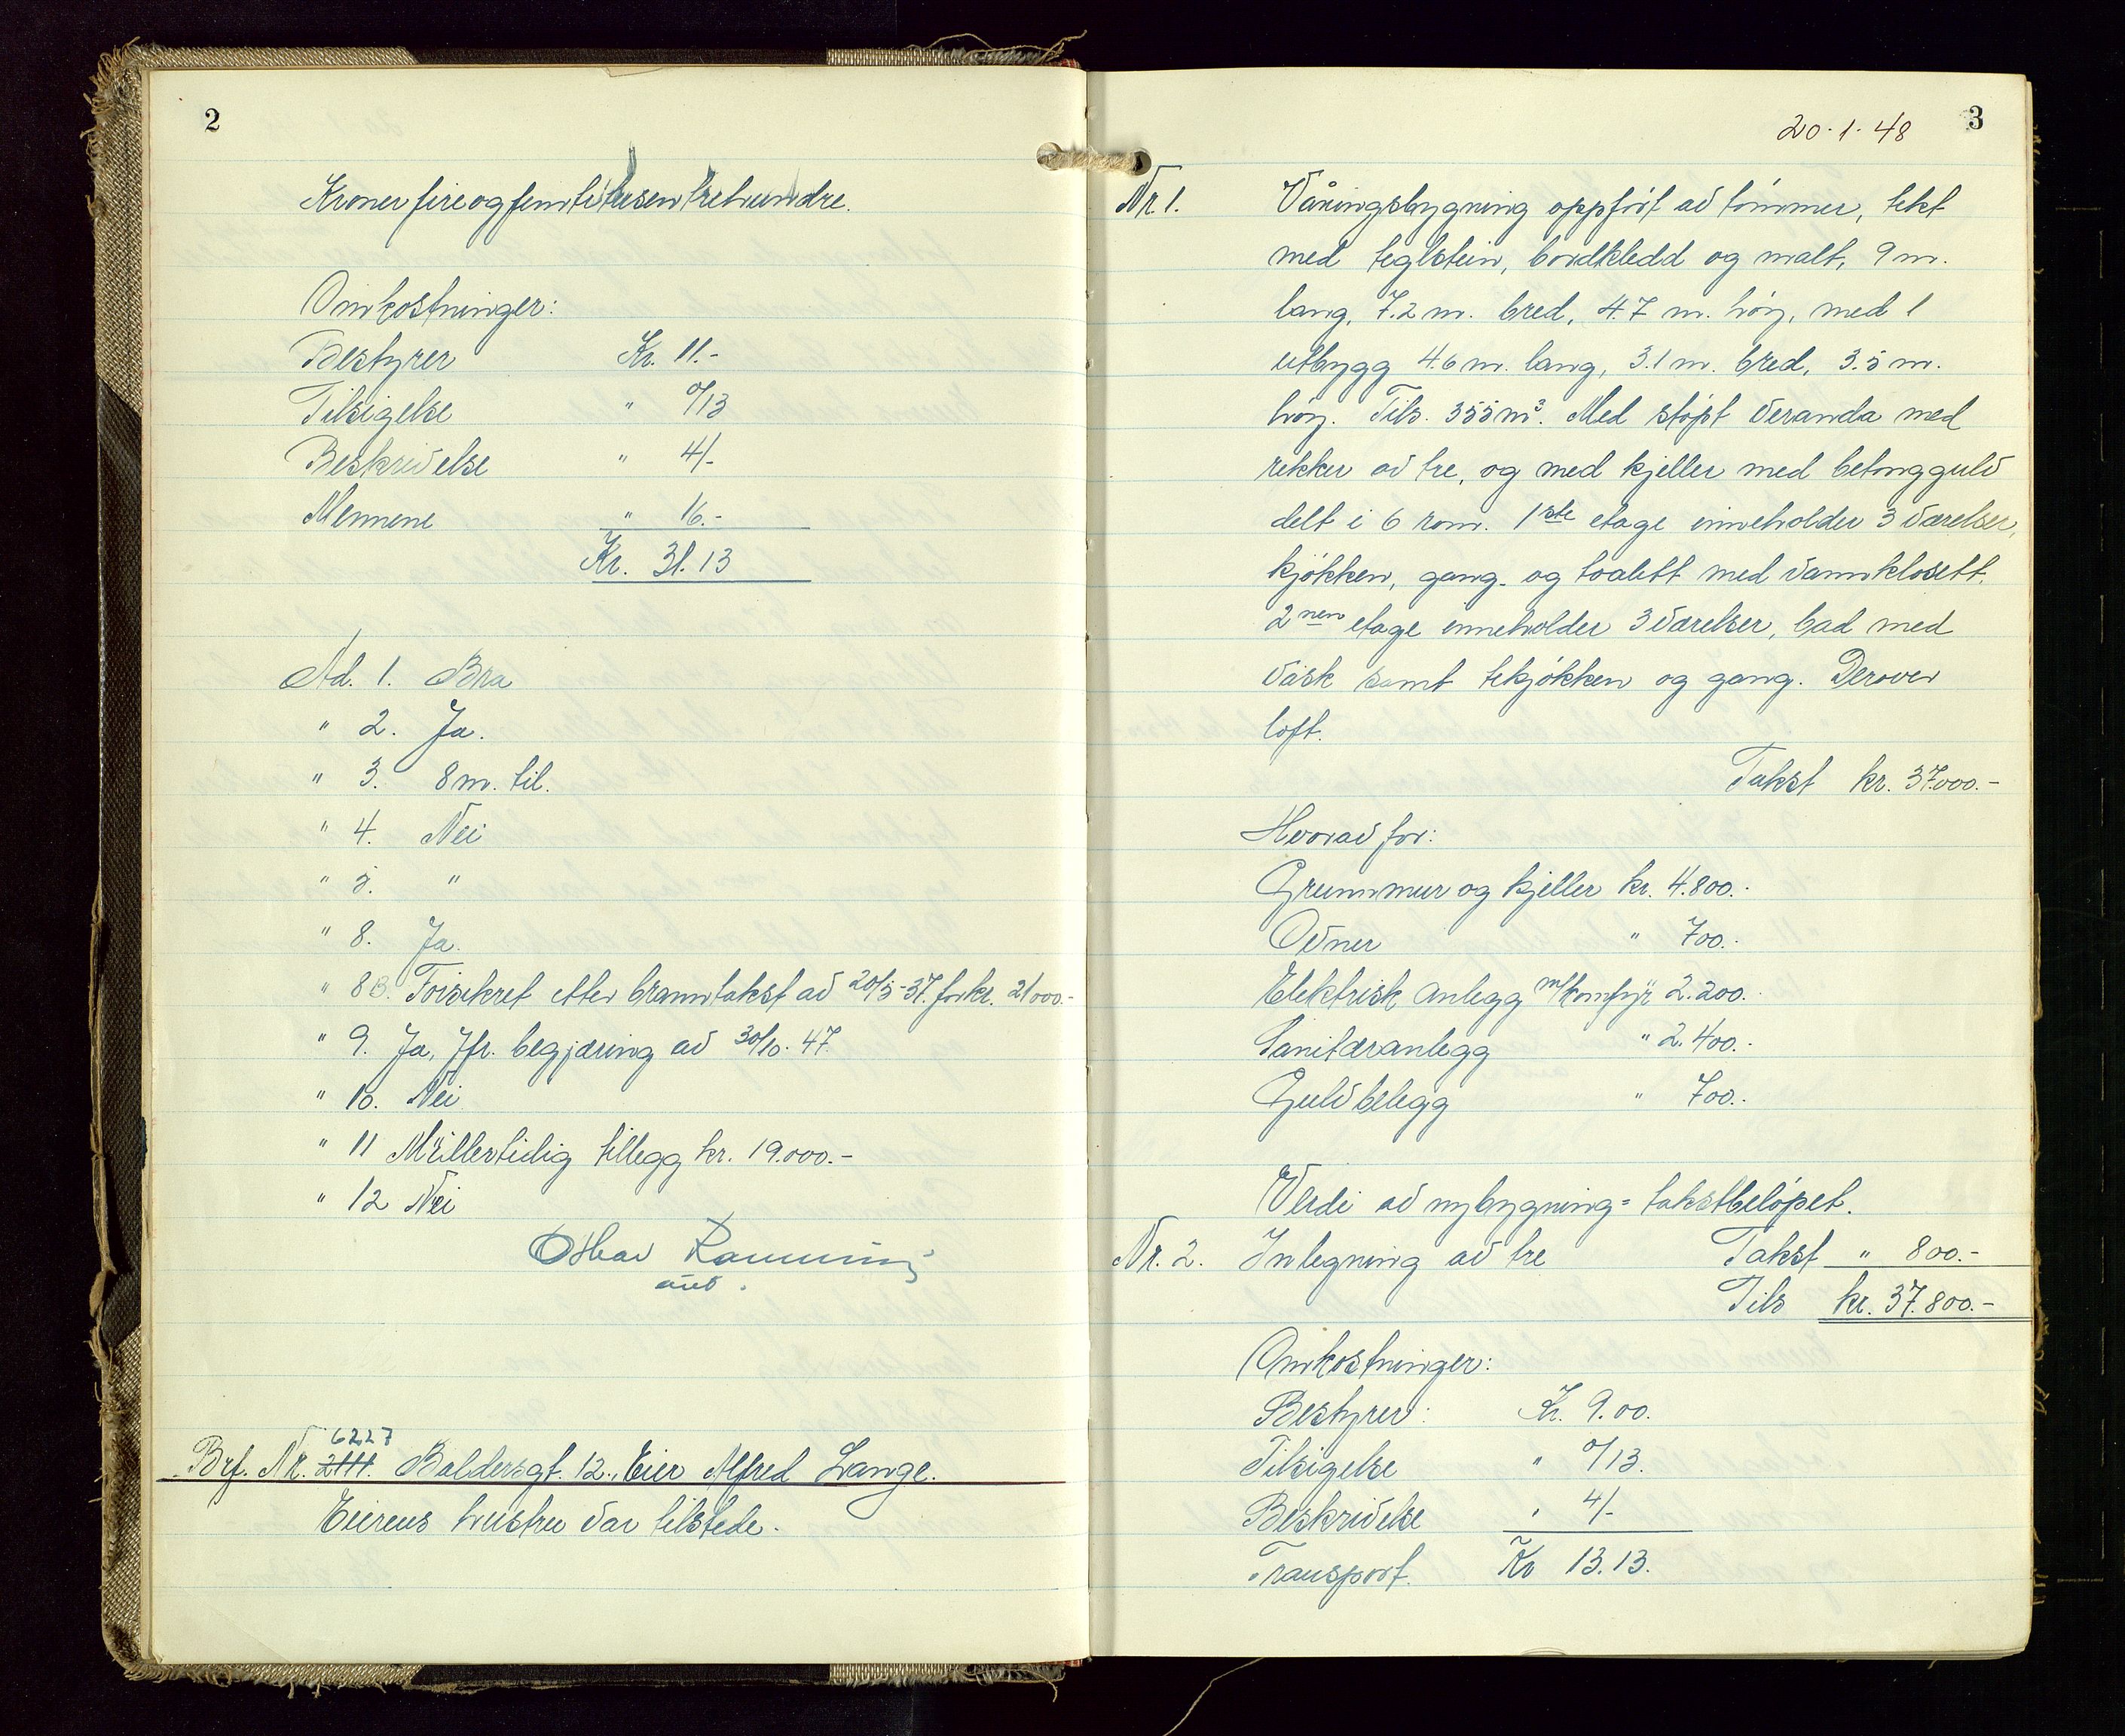 2
Kroner fireogfemtitusentrehundre.
Omkostninger:
Bestyrer Kr. 11.-
Tilsigelse " 0/13
Beskrivelse " 4/-
Mennene " 16.-
Kr. 31.13
Ad. 1. Bra
" 2. Ja.
" 3. 8 m. til.
" 4. Nei
" 5. "
" 8. Ja.
" 8B. Forsikret etter branntakst av 20/5-37. for kr. 21000.-
" 9. Ja, Jfr. begjæring av 30/10. 47.
" 10. Nei
" 11 Midlertidig tillegg kr. 19.000.-
" 12 Nei
6227
Brf. Nr. 2111. Baldersgt. 12., Eier Alfred Lange.
Eierens hustru var tilstede.
3
20.1.48
Nr. 1. Våningsbygning oppført av tømmer, tekt
med teglstein, bordkledd og malt, 9 m.
lang, 7.2 m. bred, 4.7 m. høy, med 1
utbygg 4.6 m. lang, 3.1 m. bred, 3.5 m.
høy. Tils. 355 m³. Med støpt veranda med
rekker av tre, og med kjeller med betonggulv
delt i 6 rom. 1ste etage inneholder 3 værelser,
kjøkken, gang. og toalett med vannklosett.
2nen etage inneholder 3 værelser, bad med
vask samt tekjøkken og gang. Derover
loft.
Takst kr. 37.000.-
Hvorav for:
Grunnmur og kjeller kr. 4.800.-
Ovner " 700.-
Elektrisk anlegg m/komfyr 2.200.-
Sanitæranlegg " 2.400.-
Gulvbelegg " 700.-
Verdi av nybygning = takstbeløpet.
Nr. 2. Inlegning av tre Takst " 800.-
Tils kr. 37.800.-
Omkostninger:
Bestyrer: Kr. 9.00.
Tilsigelse " 0/13.
Beskrivelse " 4/-
Transport. Kr 13.13.